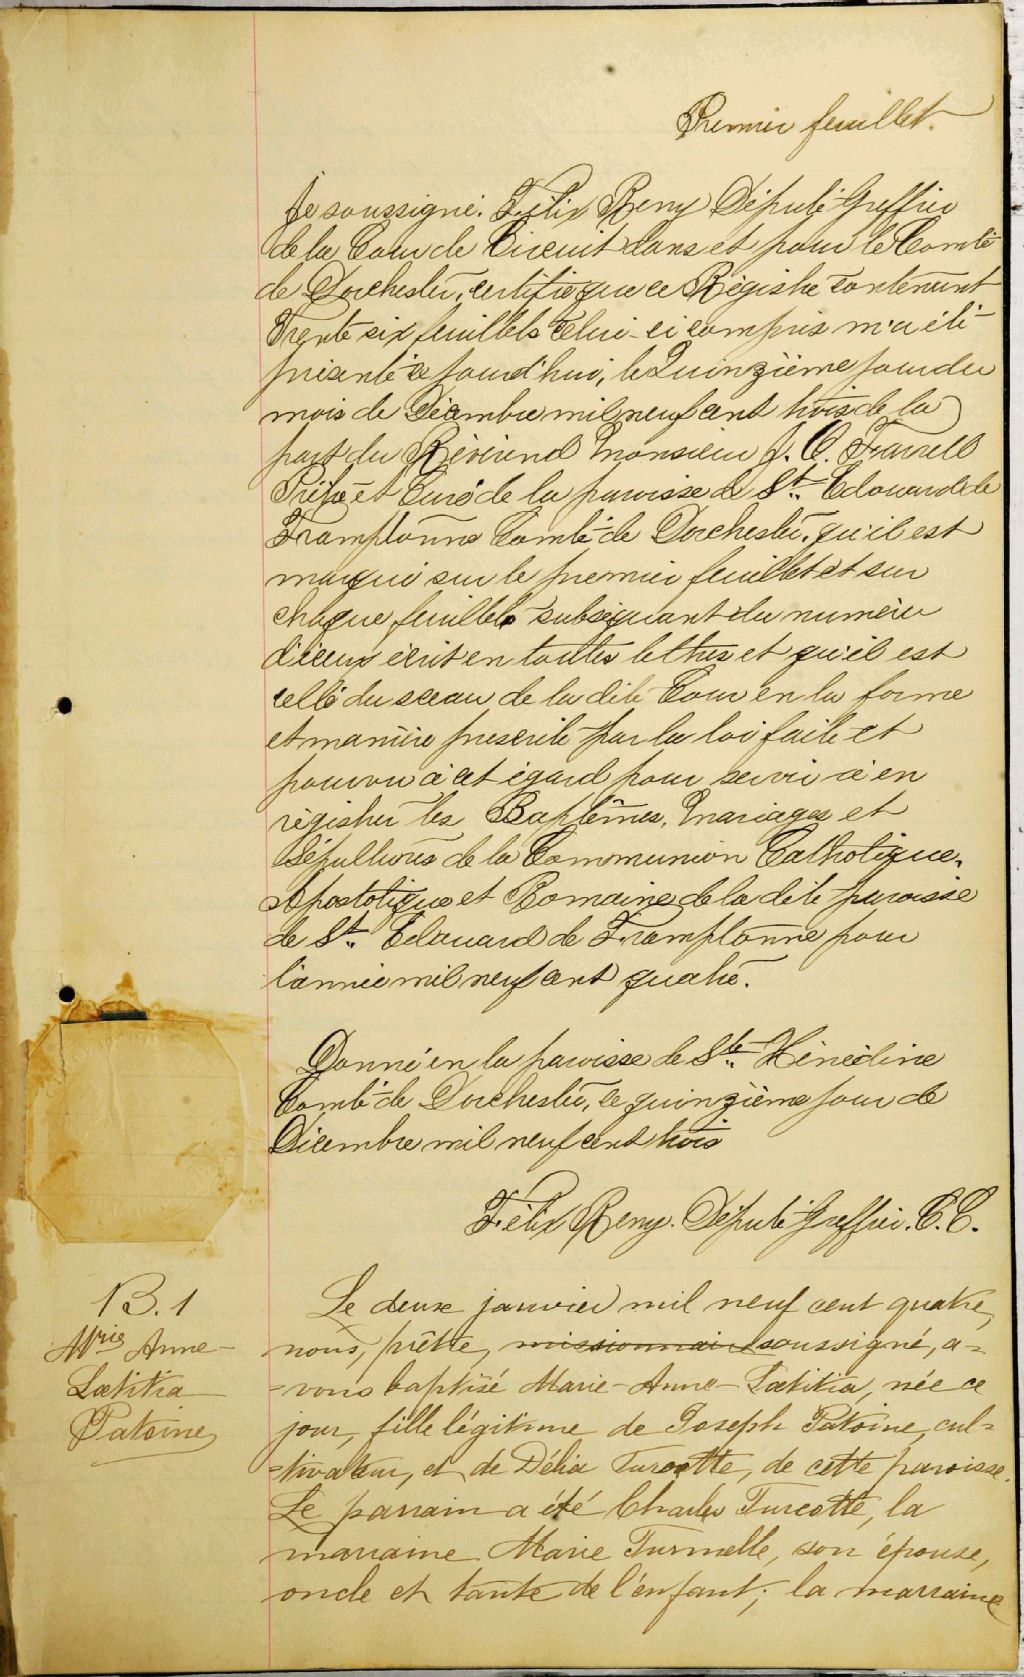 Premier feuillet.
Je soussigné, Félix Remy Député Greffier
de la Cour de Circuit dans et pour le Comté
de Dorchester, certifie que ce Régistre contenant
Trente six feuillets celui-ci compris m'a été
présenté ce jourd'hui, le Quinzième jour du
mois de Décembre mil neuf cent trois de la
part du Révérend Monsieur J. O.
Prêtre et Curé de la paroisse de St. Edouard de
Framptonne Comté de Dorchester, qu'il est
marqué sur le premier feuillet et sur
chaque feuillets subséquant du numéro
d'iceux écrit en toutes lettres et qu'il est
cellé du sceau de la dite Cour en la forme
et manière prescrite par la loi faite et
pourvu à cet égard pour servir à en
régistrer les Baptêmes, Mariages et
Sépultures de la Communion Catholique,
Apostolique et Romaine de la dite paroisse
de St. Edouard de Framptonne pour
l'année mil neuf cent quatre.
Donné en la paroisse de Ste. Hénédine
Comté de Dorchester, ce quinzième jour de
Décembre mil neuf cent trois
Félix Remy. Député Greffier. C. C.
B. 1
Mrie Anne-
Lætitia
Patoine
Le deux janvier mil neuf cent quatre,
nous, prêtre, missionnaire soussigné, a-
-vons baptisé Marie-Anne-Lætitia, née ce
jour, fille légitime de Joseph Patoine, cul-
-tivateur, et de Délia Turcotte, de cette paroisse.
Le parrain a été Charles Turcotte, la
marraine Marie Turmelle, son épouse,
oncle et tante de l'enfant; la marraine